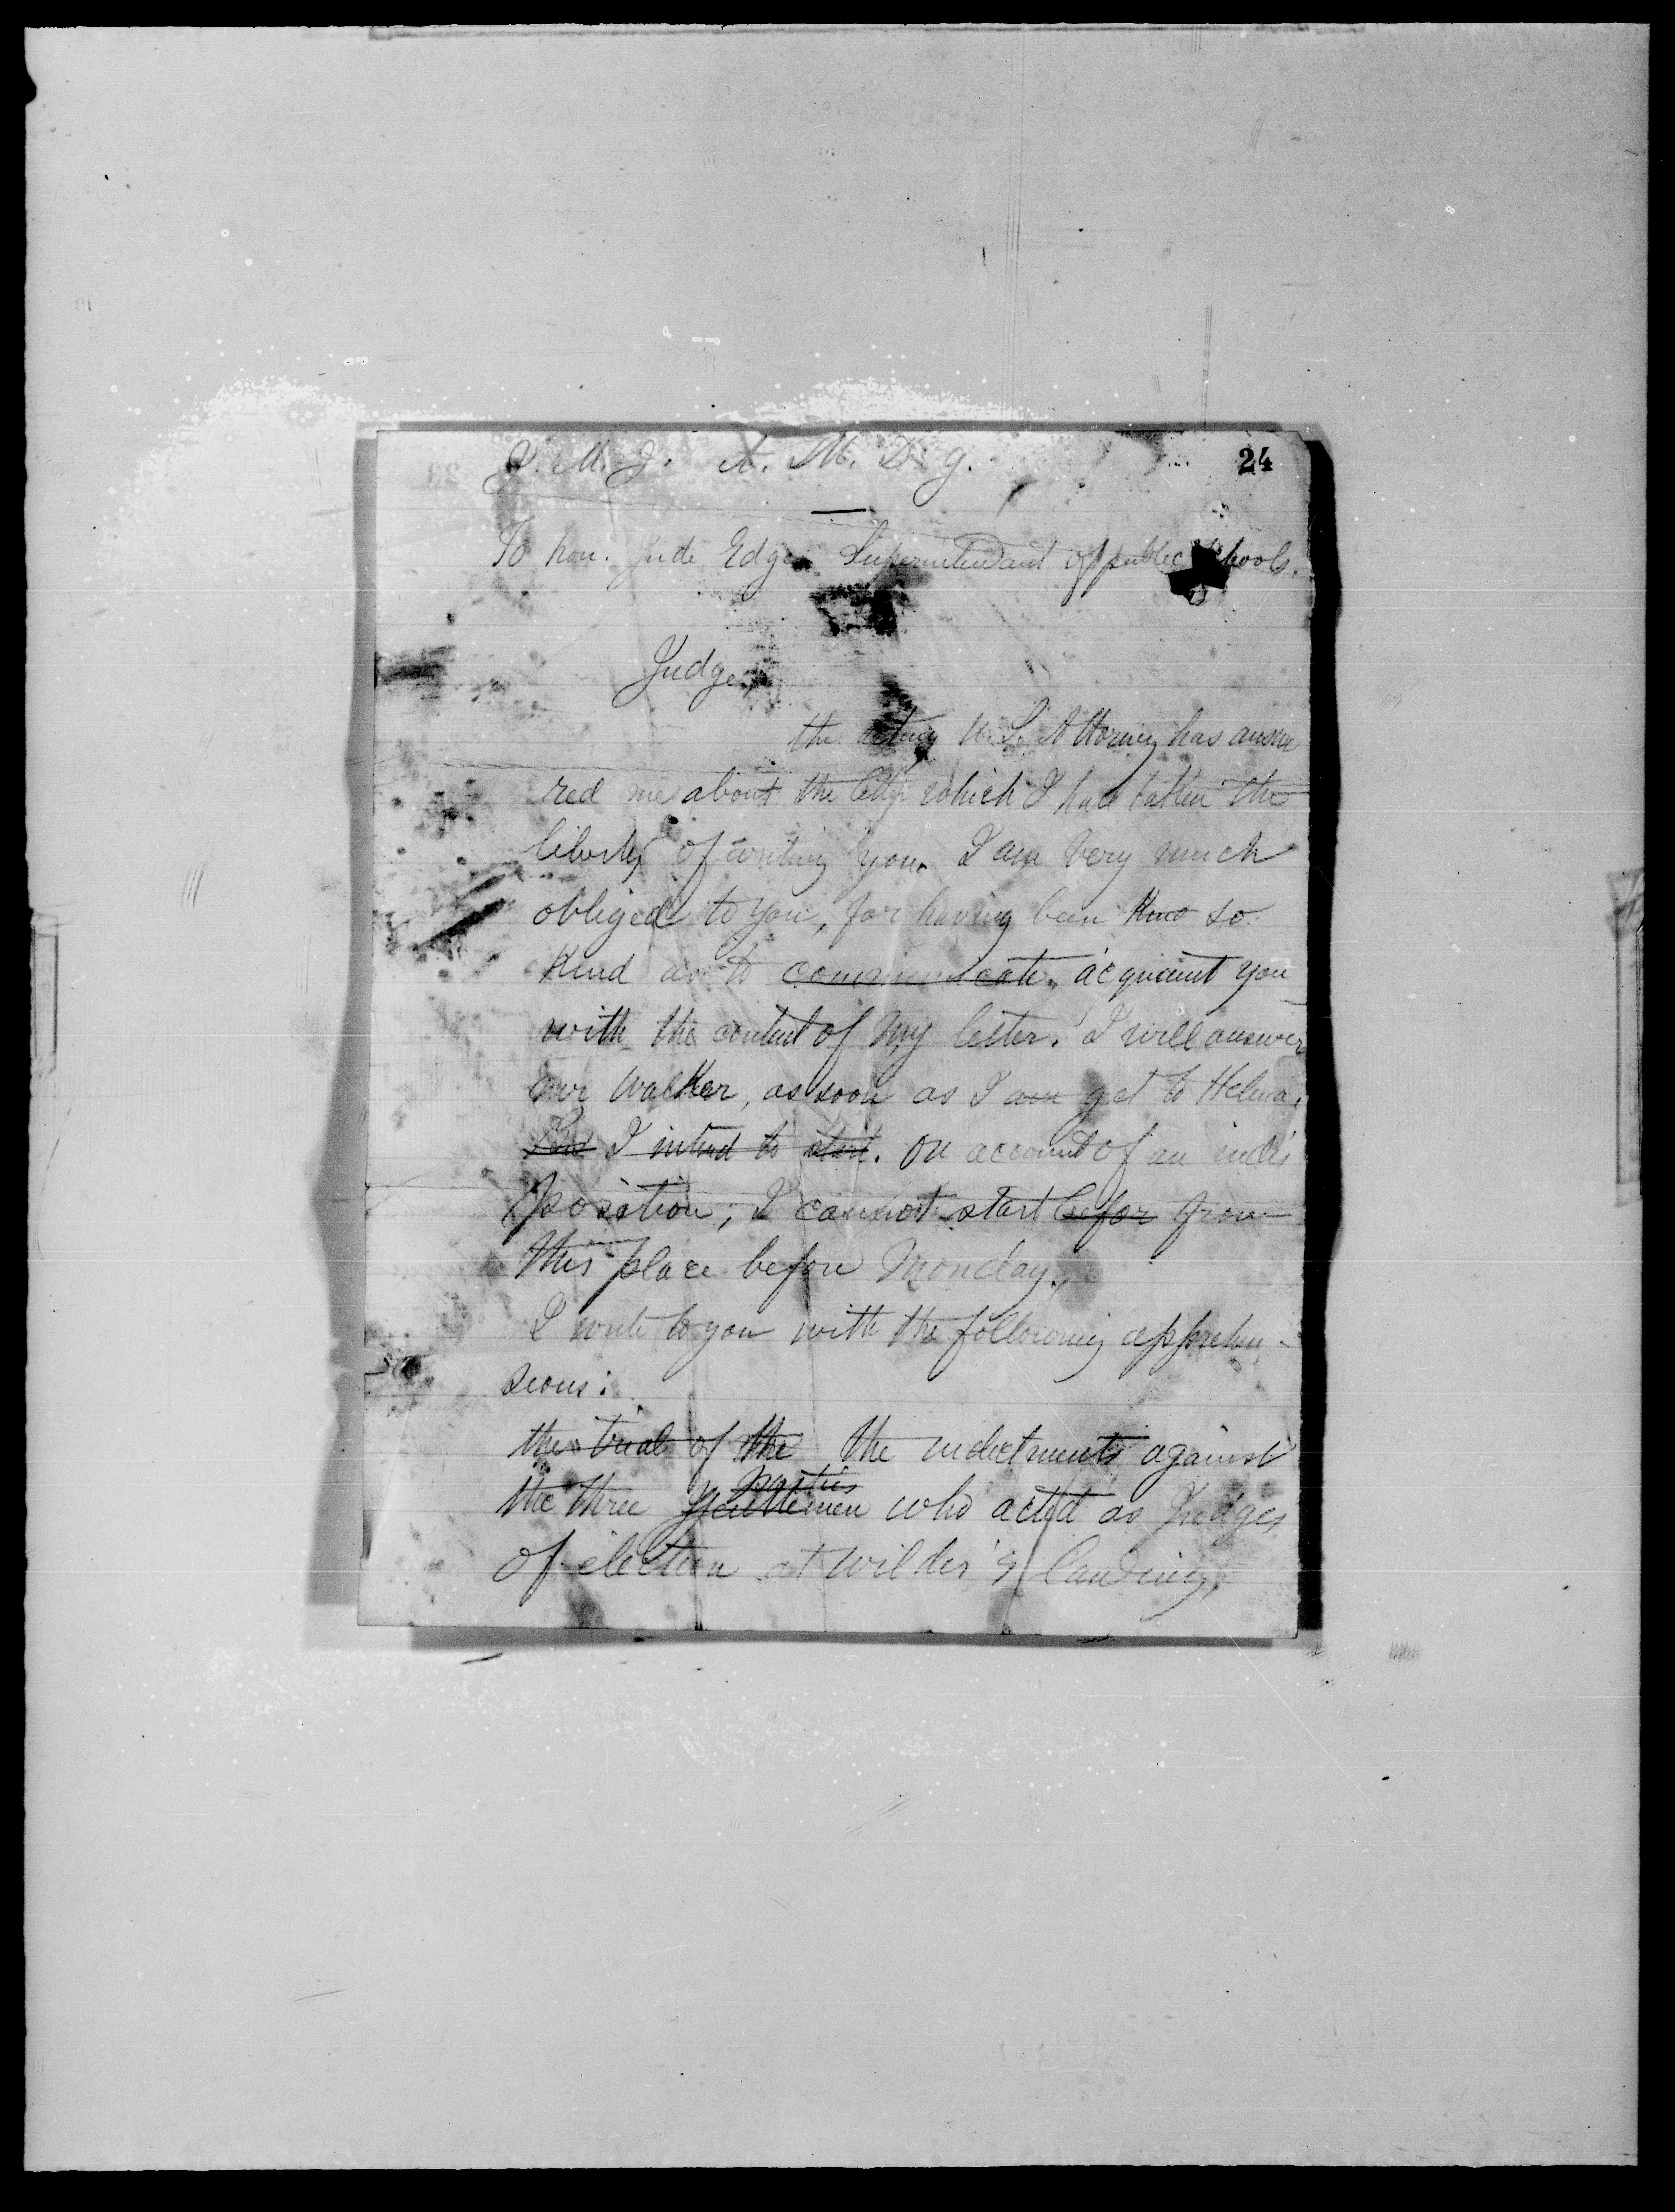 J. M. J. A. M. D. g. 24
To hon. Jude Edger Superintendant of public schools.
Judge,
the acting U.S. Attorney has answe
red me about the letter which I had taken the
liberty of writing you. I am very much
obliged to you, for having been so
kind as to communicate. acquaint you
with the content of my letter. I will answer
mr Walker, as soon as I am get to Helena.
But I intend to start. on account of an indis
position, I cannot start befor from
this place before Monday.
I write to you with the following apprehen-
sions:
the trial of the the indictments against
parties
the three gentlemen who acted as Judges
of election at wilder's landing,